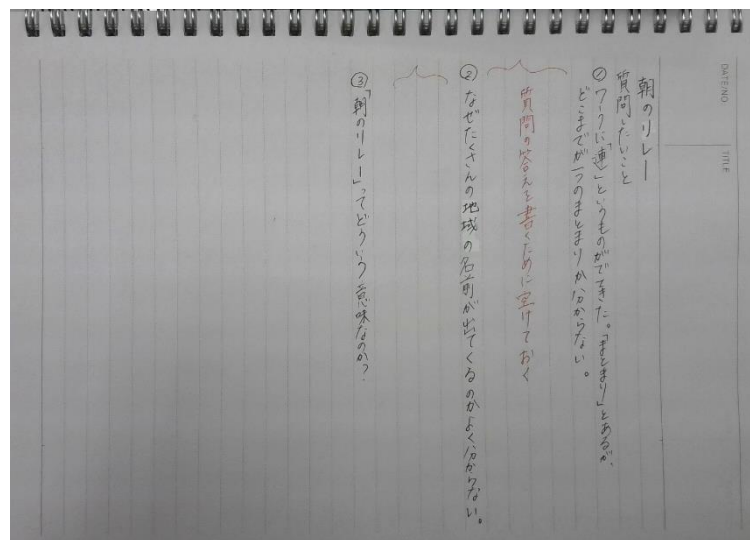 DATE/NO.
TITLE
朝のリレー
質問したいこと
①ワークに「連」というものがでてきた。「まとまり」とあるが、
どこまでが一つのまとまりか分からない。
質問の答えを書くために空けておく
②なぜたくさんの地域の名前が出てくるのかよく分からない。
③「朝のリレー」ってどういう意味なのか?